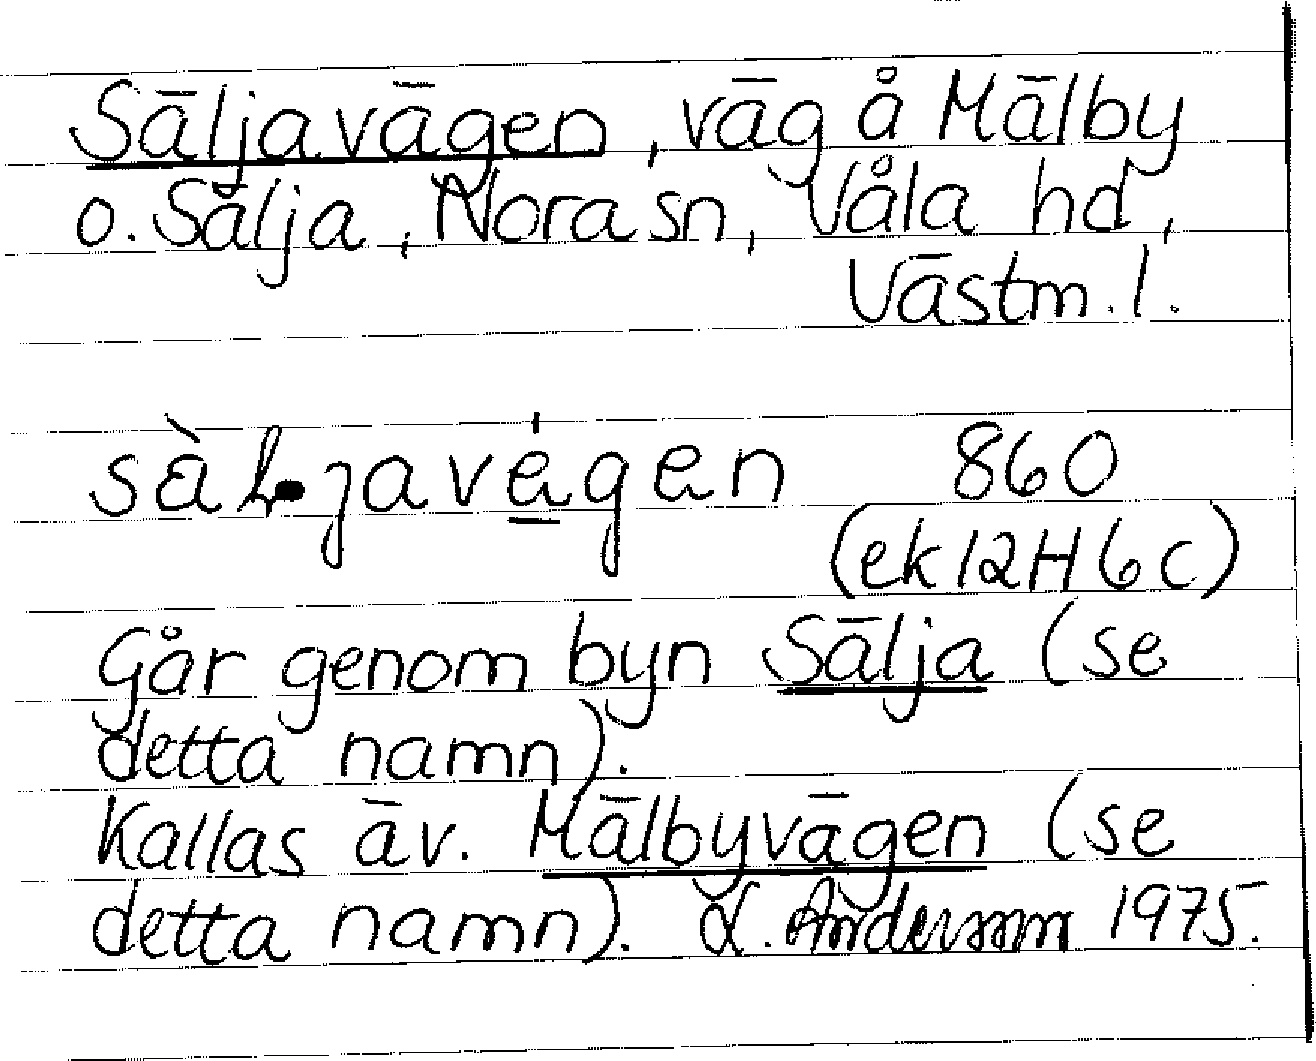 Säljavägen, väg å Mälby
o. Sälja, Nora sn, Våla hd,
Västm. l.
860
(ek 12H 6c)
Går genom byn Sälja (se
detta namn).
Kallas äv. Mälbyvägen (se
detta namn). L. Andersson 1975.